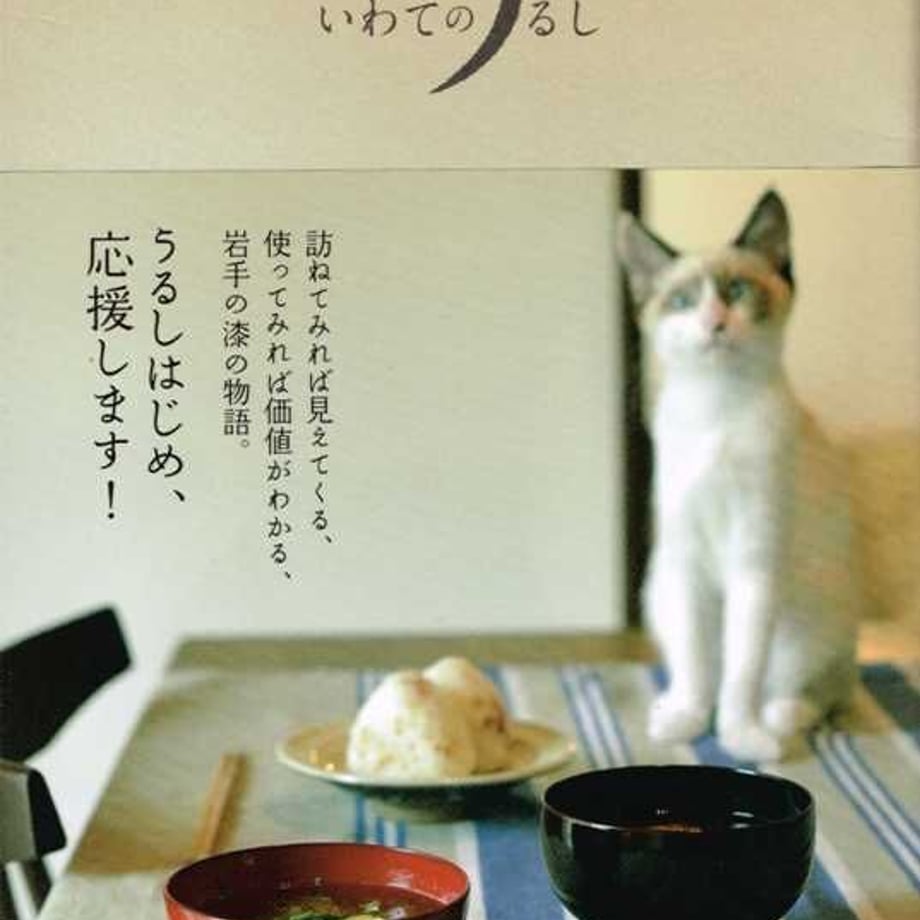 いわてのうるし
訪ねてみれば見えてくる、
使ってみれば価値がわかる、
岩手の漆の物語。
うるしはじめ、
応援します！